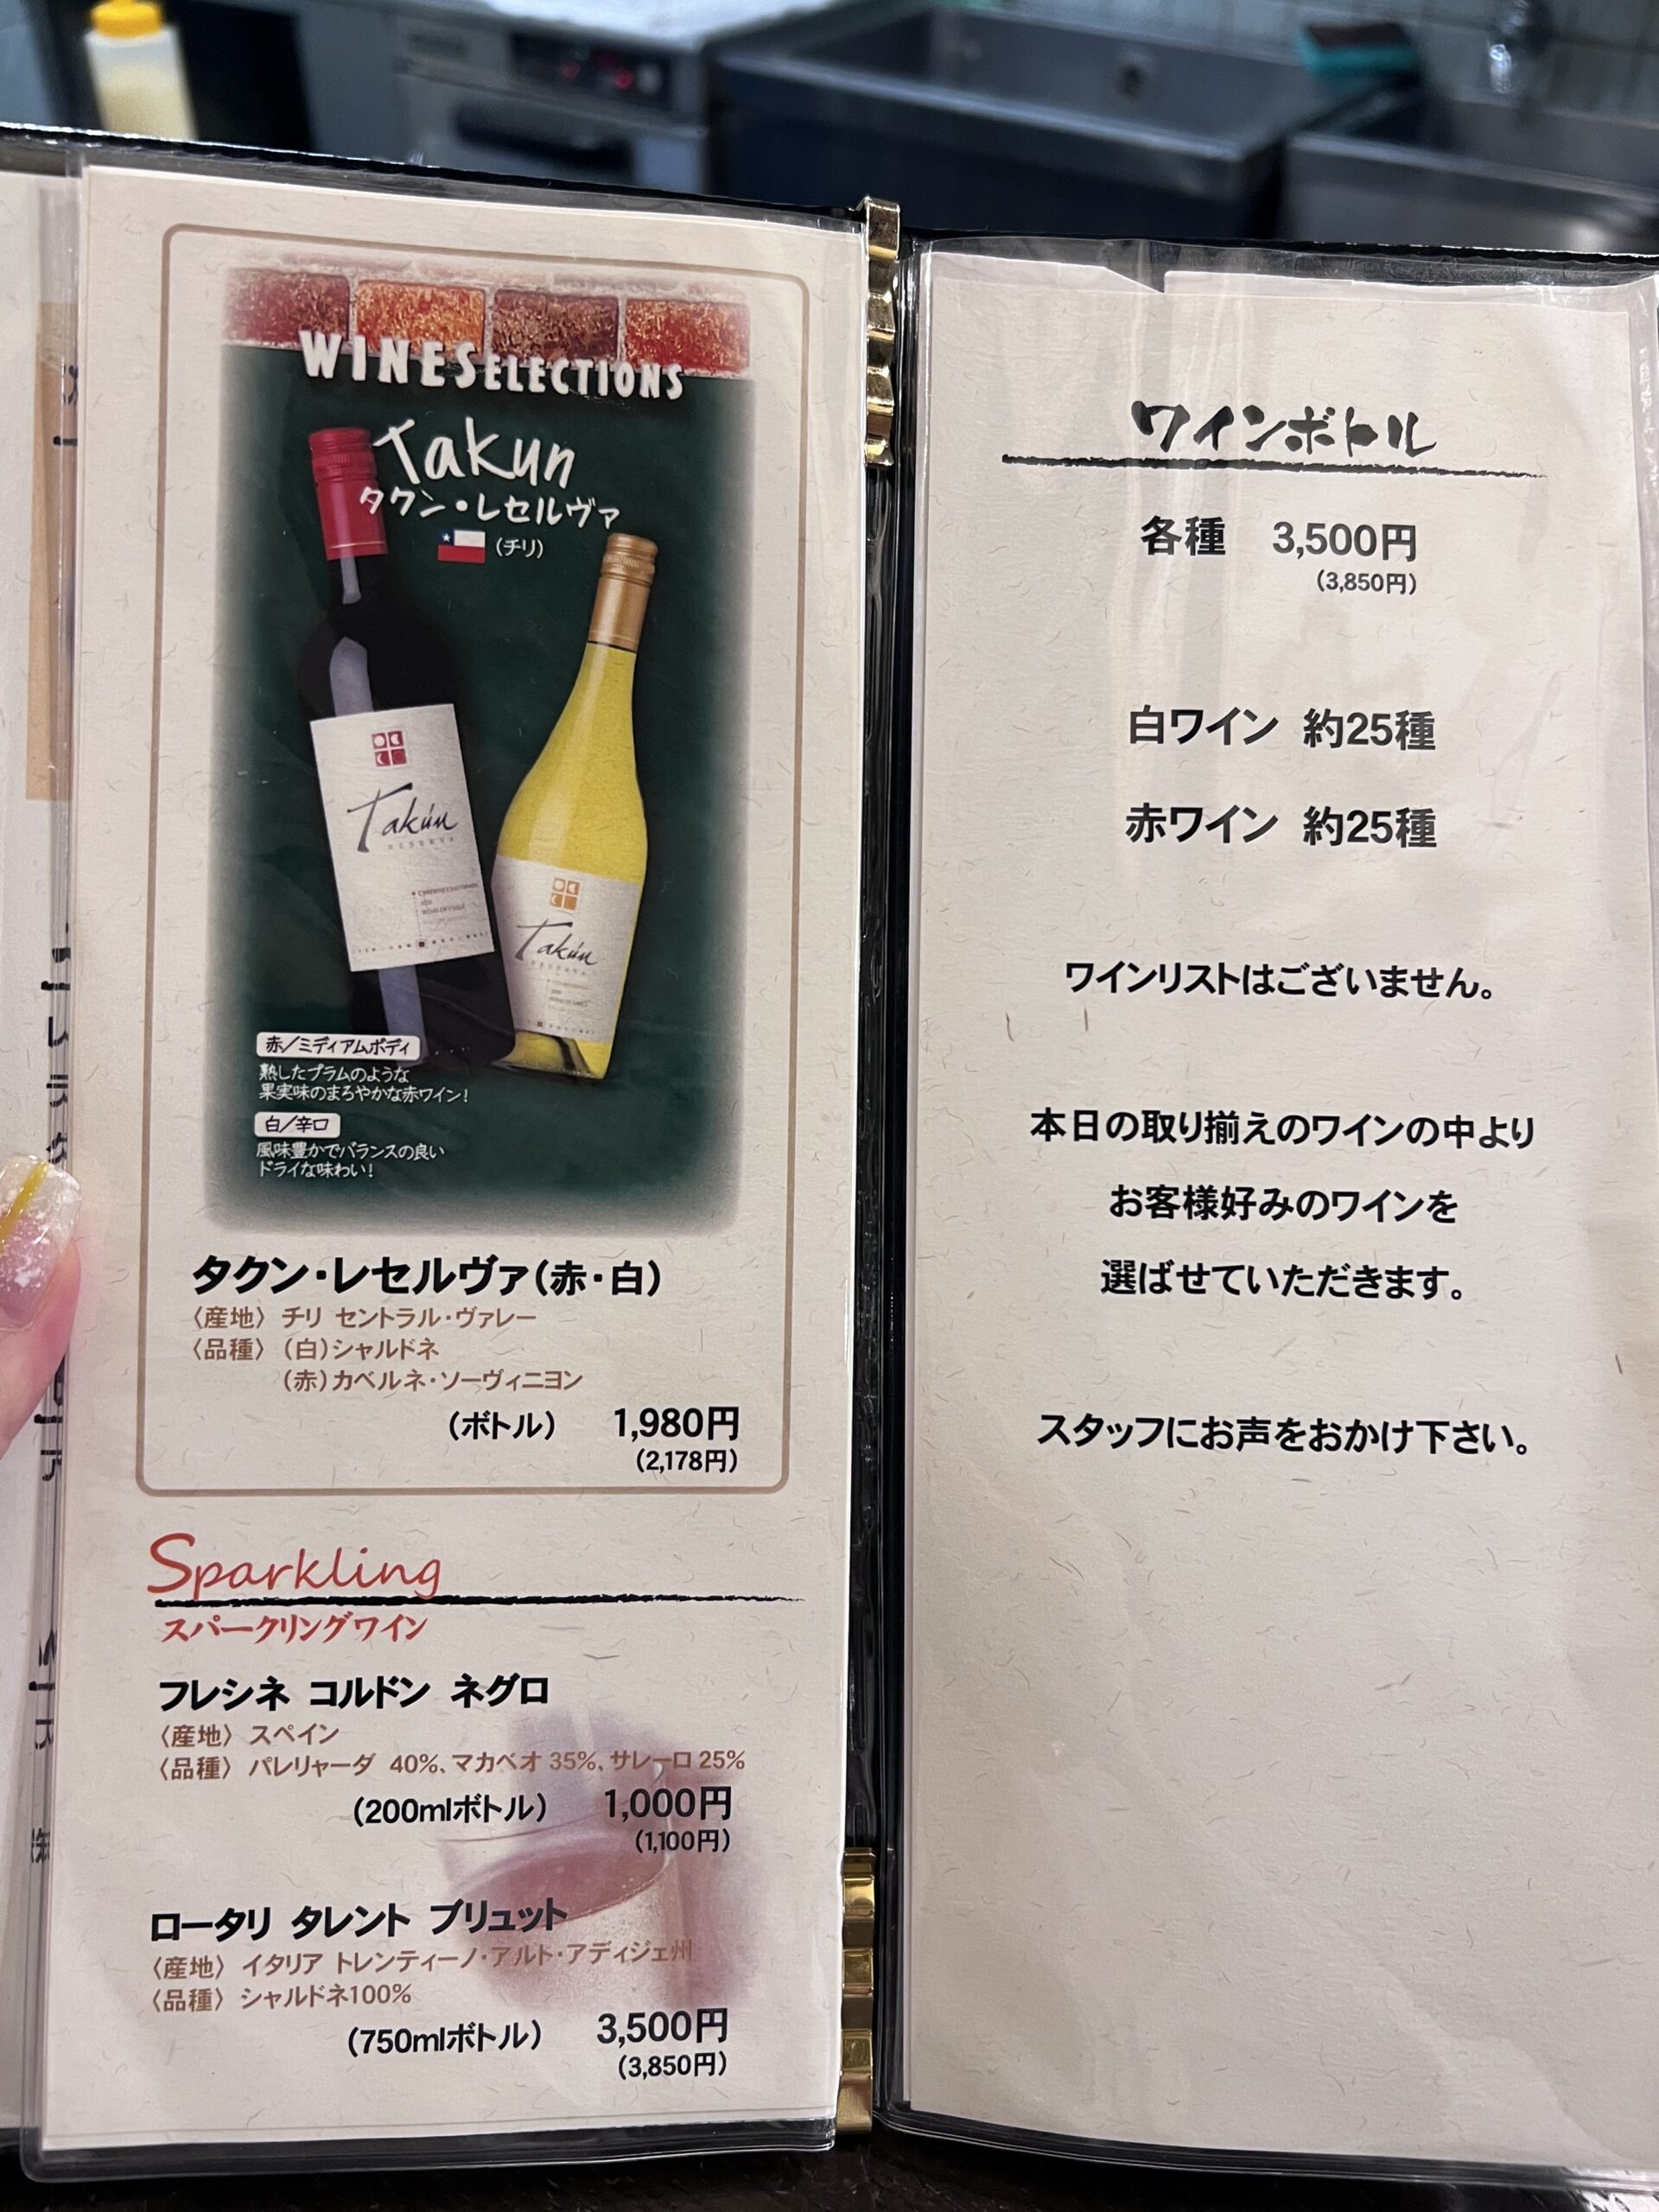 WINE SELECTIONS
Takun
タクン・レセルヴァ
(チリ)
Takún
RESERVA
Takún
RESERVA
赤/ミディアムボディ
熟したプラムのような
果実味のまろやかな赤ワイン!
白/辛口
風味豊かでバランスの良い
ドライな味わい!
タクン・レセルヴァ(赤・白)
〈産地〉 チリ セントラル・ヴァレー
〈品種〉 (白)シャルドネ
(赤)カベルネ・ソーヴィニヨン
(ボトル) 1,980円
(2,178円)
Sparkling
スパークリングワイン
フレシネ コルドン ネグロ
〈産地〉 スペイン
〈品種〉 パレリャーダ 40%、マカベオ 35%、サレーロ 25%
(200mlボトル) 1,000円
(1,100円)
ロータリ タレント ブリュット
〈産地〉 イタリア トレンティーノ・アルト・アディジェ州
〈品種〉 シャルドネ100%
(750mlボトル) 3,500円
(3,850円)
ワインボトル
各種 3,500円
(3,850円)
白ワイン 約25種
赤ワイン 約25種
ワインリストはございません。
本日の取り揃えのワインの中より
お客様好みのワインを
選ばせていただきます。
スタッフにお声をおかけ下さい。